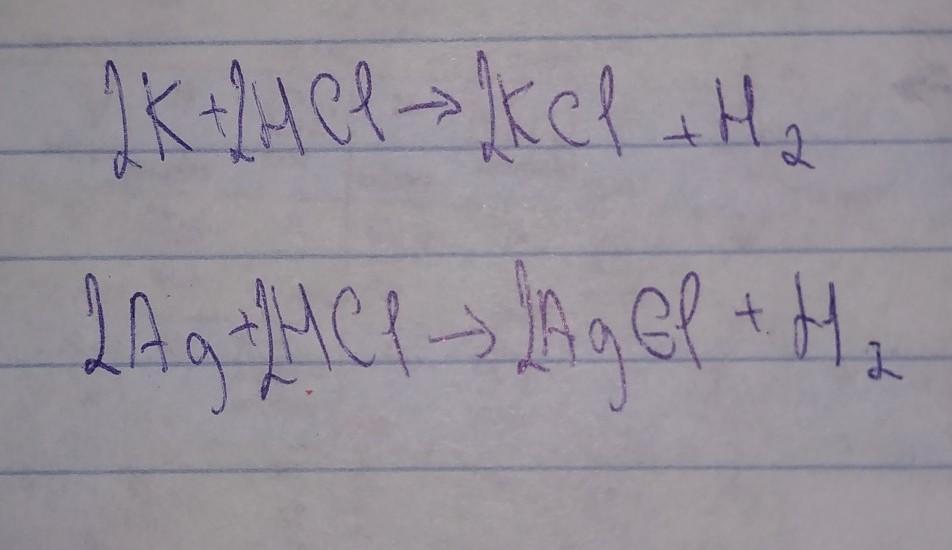 2K+2HCl→2KCl+H2
2Ag+2HCl→2AgCl+H2